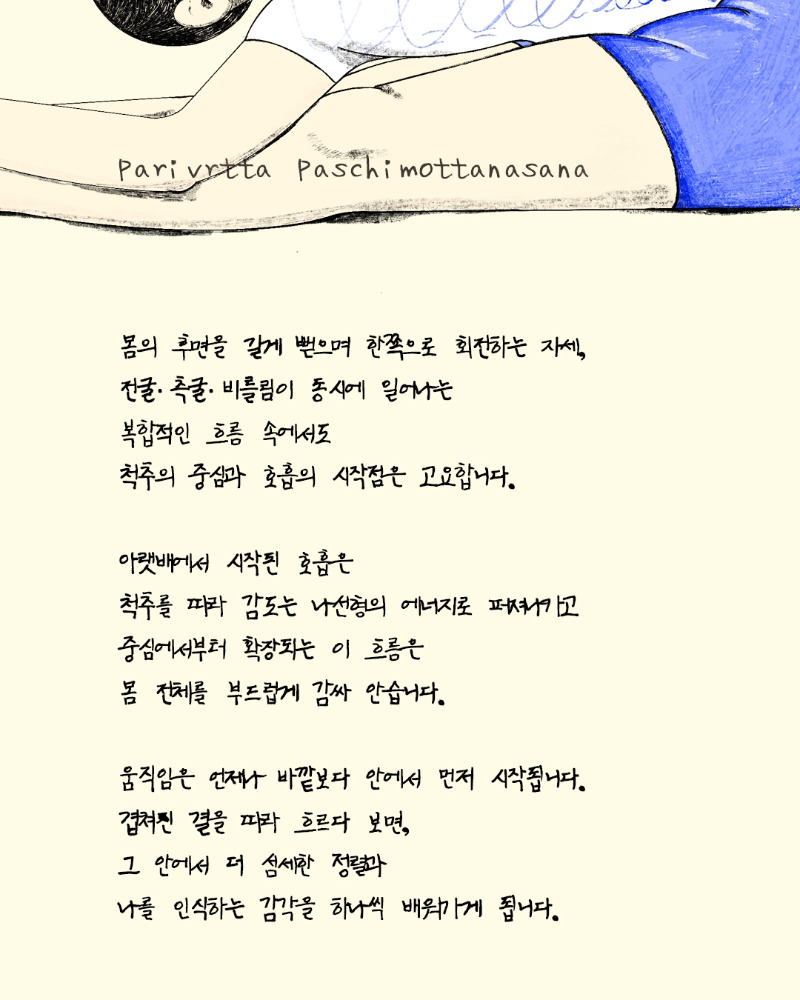 Parivrtta Paschimottanasana
몸의 후면을 길게 뻗으며 한쪽으로 회전하는 자세,
전굴·측굴·비틀림이 동시에 일어나는
복합적인 흐름 속에서도
척추의 중심과 호흡의 시작점은 고요합니다.
아랫배에서 시작된 호흡은
척추를 따라 감도는 나선형의 에너지로 퍼져나가고
중심에서부터 확장되는 이 흐름은
몸 전체를 부드럽게 감싸 안습니다.
움직임은 언제나 바깥보다 안에서 먼저 시작됩니다.
겹쳐진 결을 따라 흐르다 보면,
그 안에서 더 섬세한 정렬과
나를 인식하는 감각을 하나씩 배워가게 됩니다.